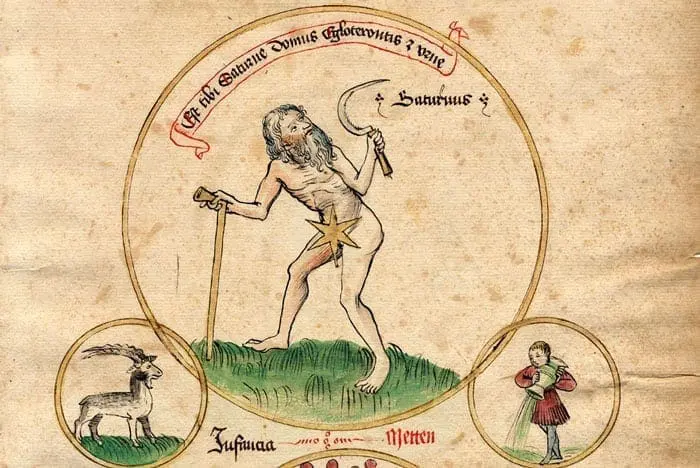 Est tibi Saturne domus Egloterontis ⁊ vrne
Saturnus
Infancia
Metten